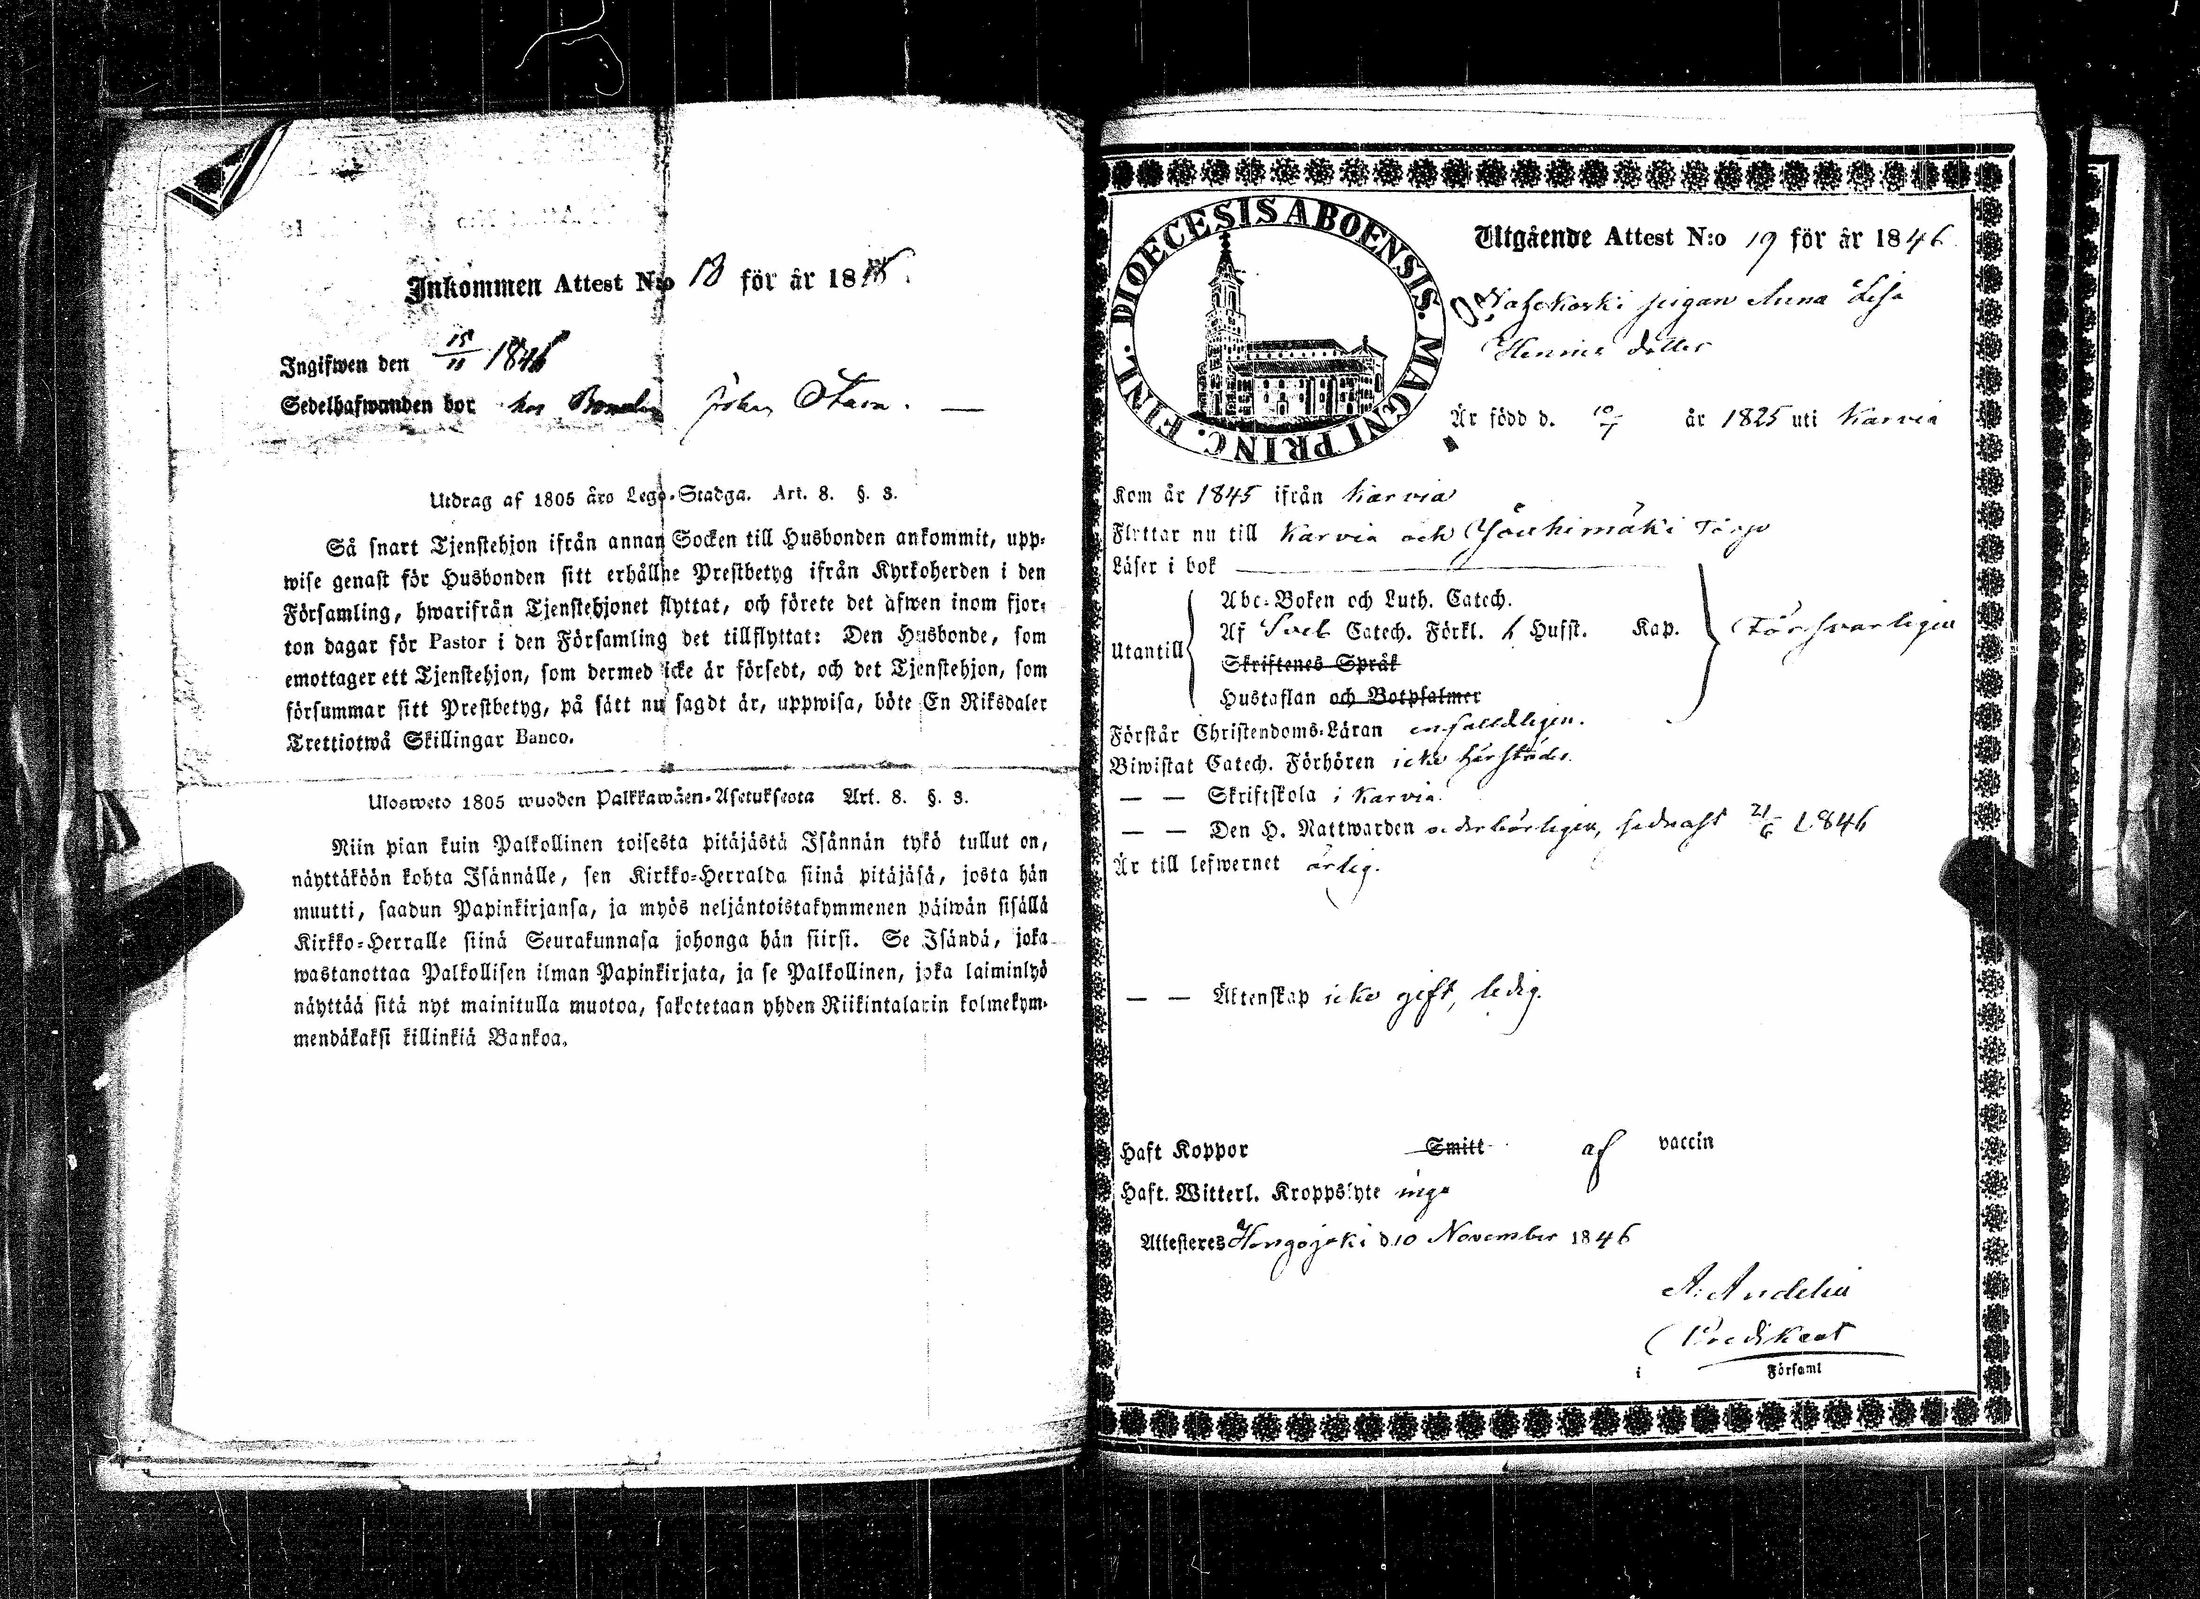 Inkommen Attest N:o 18 för år 18
Ingifwen den 15/11 1846
Sedelhafwanden bor hos Johan
Utdrag af 1805 års Lego-Stadga. Art. 8. §. 3.
Så snart Tjenstehjon ifrån annan Socken till Husbonden ankommit, upp-
wise genast för Husbonden sitt erhållne Prestbetyg ifrån Kyrkoherden i den
Församling, hwarifrån Tjenstehjonet flyttat, och förete det äfwen inom fjor-
ton dagar för Pastor i den Församling det tillflyttat: Den Husbonde, som
emottager ett Tjenstehjon, som dermed icke är försedt, och det Tjenstehjon, som
försummar sitt Prestbetyg, på sätt nu sagdt är, uppwisa, böte En Riksdaler
Trettiotwå Skillingar Banco.
Ulosweto 1805 wuoden Palkkawäen-Asetuksesta Art. 8. §. 3.
Niin pian kuin Palkollinen toisesta pitäjästä Isännän tykö tullut on,
näyttäköön kohta Isännälle, sen Kirkko-Herralda siinä pitäjäsä, josta hän
muutti, saadun Papinkirjansa, ja myös neljäntoistakymmenen päiwän sisällä
Kirkko-Herralle siinä Seurakunnasa johonga hän siirsi. Se Isändä, joka
wastanottaa Palkollisen ilman Papinkirjata, ja se Palkollinen, joka laiminlyö
näyttää sitä nyt mainitulla muotoa, sakotetaan yhden Riikintalarin kolmekym-
mendäkaksi killinkiä Bankoa.
FINL. DIOECESIS ABOENSIS. MAGNI PRINC.
Utgående Attest N:o 19 för år 1846
pigan Anna Lisa
Henrics dotter
Är född d. 10/7 år 1825 uti Karvia
Kom år 1845 ifrån Karvia
Flyttar nu till Karvia och Jouhimäki Torp
Läser i bok
Abc-Boken och Luth. Catech.
Af Sveb Catech. Förkl. h Husst. Kap.
Utantill Försvarligen
Skriftenes Språk
Hustaflan och Botpsalmer
Förstår Christendoms-Läran enfalldligen.
Biwistat Catech. Förhören icke härstädes.
— — Skriftskola i Karvia.
— — Den H. Nattwarden vederbörligen, sednast 21/6 1846
Är till lefwernet ärlig.
— — Äktenskap icke gift, ledig.
Haft Koppor Smitt af vaccin
Haft. Witterl. Kroppslyte inga
Attesteres Hongojoki d. 10 November 1846
A. Andelin
Predikant
i Församl